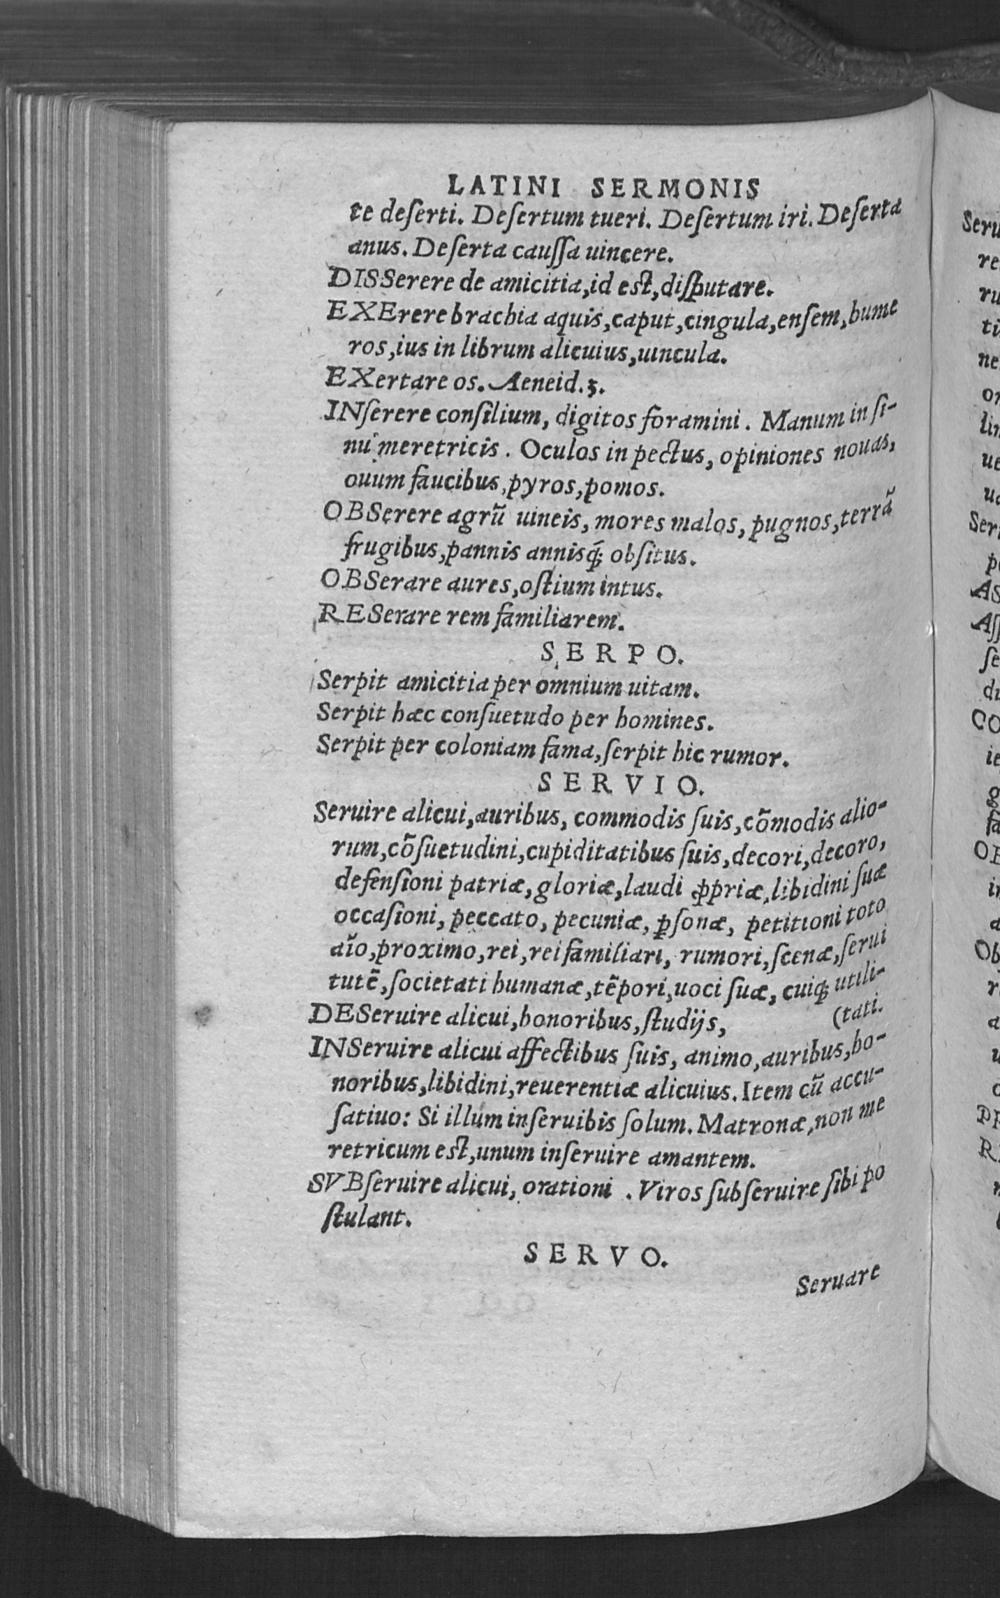 LATINI SERMONIS
te deſerti. Deſertum tueri. Deſertum iri. Deſerta
anus. Deſerta cauſſa uincere.
DISSerere de amicitia, id eſt, diſputare.
EXErere brachia aquis, caput, cingula, enſem, hume
ros, ius in librum alicuius, uincula.
EXertare os. Aeneid. 3.
INſerere conſilium, digitos foramini. Manum in ſi-
nu meretricis. Oculos in pectus, opiniones nouas,
ouum faucibus, pyros, pomos.
OBSerere agrũ uineis, mores malos, pugnos, terrã
frugibus, pannis annisq́; obſitus.
OBSerare aures, oſtium intus.
RESerare rem familiarem.
SERPO.
Serpit amicitia per omnium uitam.
Serpit hæc conſuetudo per homines.
Serpit per coloniam fama, ſerpit hic rumor.
SERVIO.
Seruire alicui, auribus, commodis ſuis, cõmodis alio-
rum, cõſuetudini, cupiditatibus ſuis, decori, decoro,
defenſioni patriæ, gloriæ, laudi ꝓpriæ, libidini ſuæ
occaſioni, peccato, pecuniæ, ꝑſonæ, petitioni toto
aĩo, proximo, rei, rei familiari, rumori, ſcenæ, ſerui
tutẽ, ſocietati humanæ, tẽpori, uoci ſuæ, cuiq; utili-
DESeruire alicui, honoribus, ſtudijs, (tati.
INSeruire alicui affectibus ſuis, animo, auribus, ho-
noribus, libidini, reuerentiæ alicuius. Item cũ accu-
ſatiuo: Si illum inſeruibis ſolum. Matronæ, non me
retricum eſt, unum inſeruire amantem.
SVBſeruire alicui, orationi. Viros ſubſeruire ſibi po
ſtulant.
SERVO.
Seruare